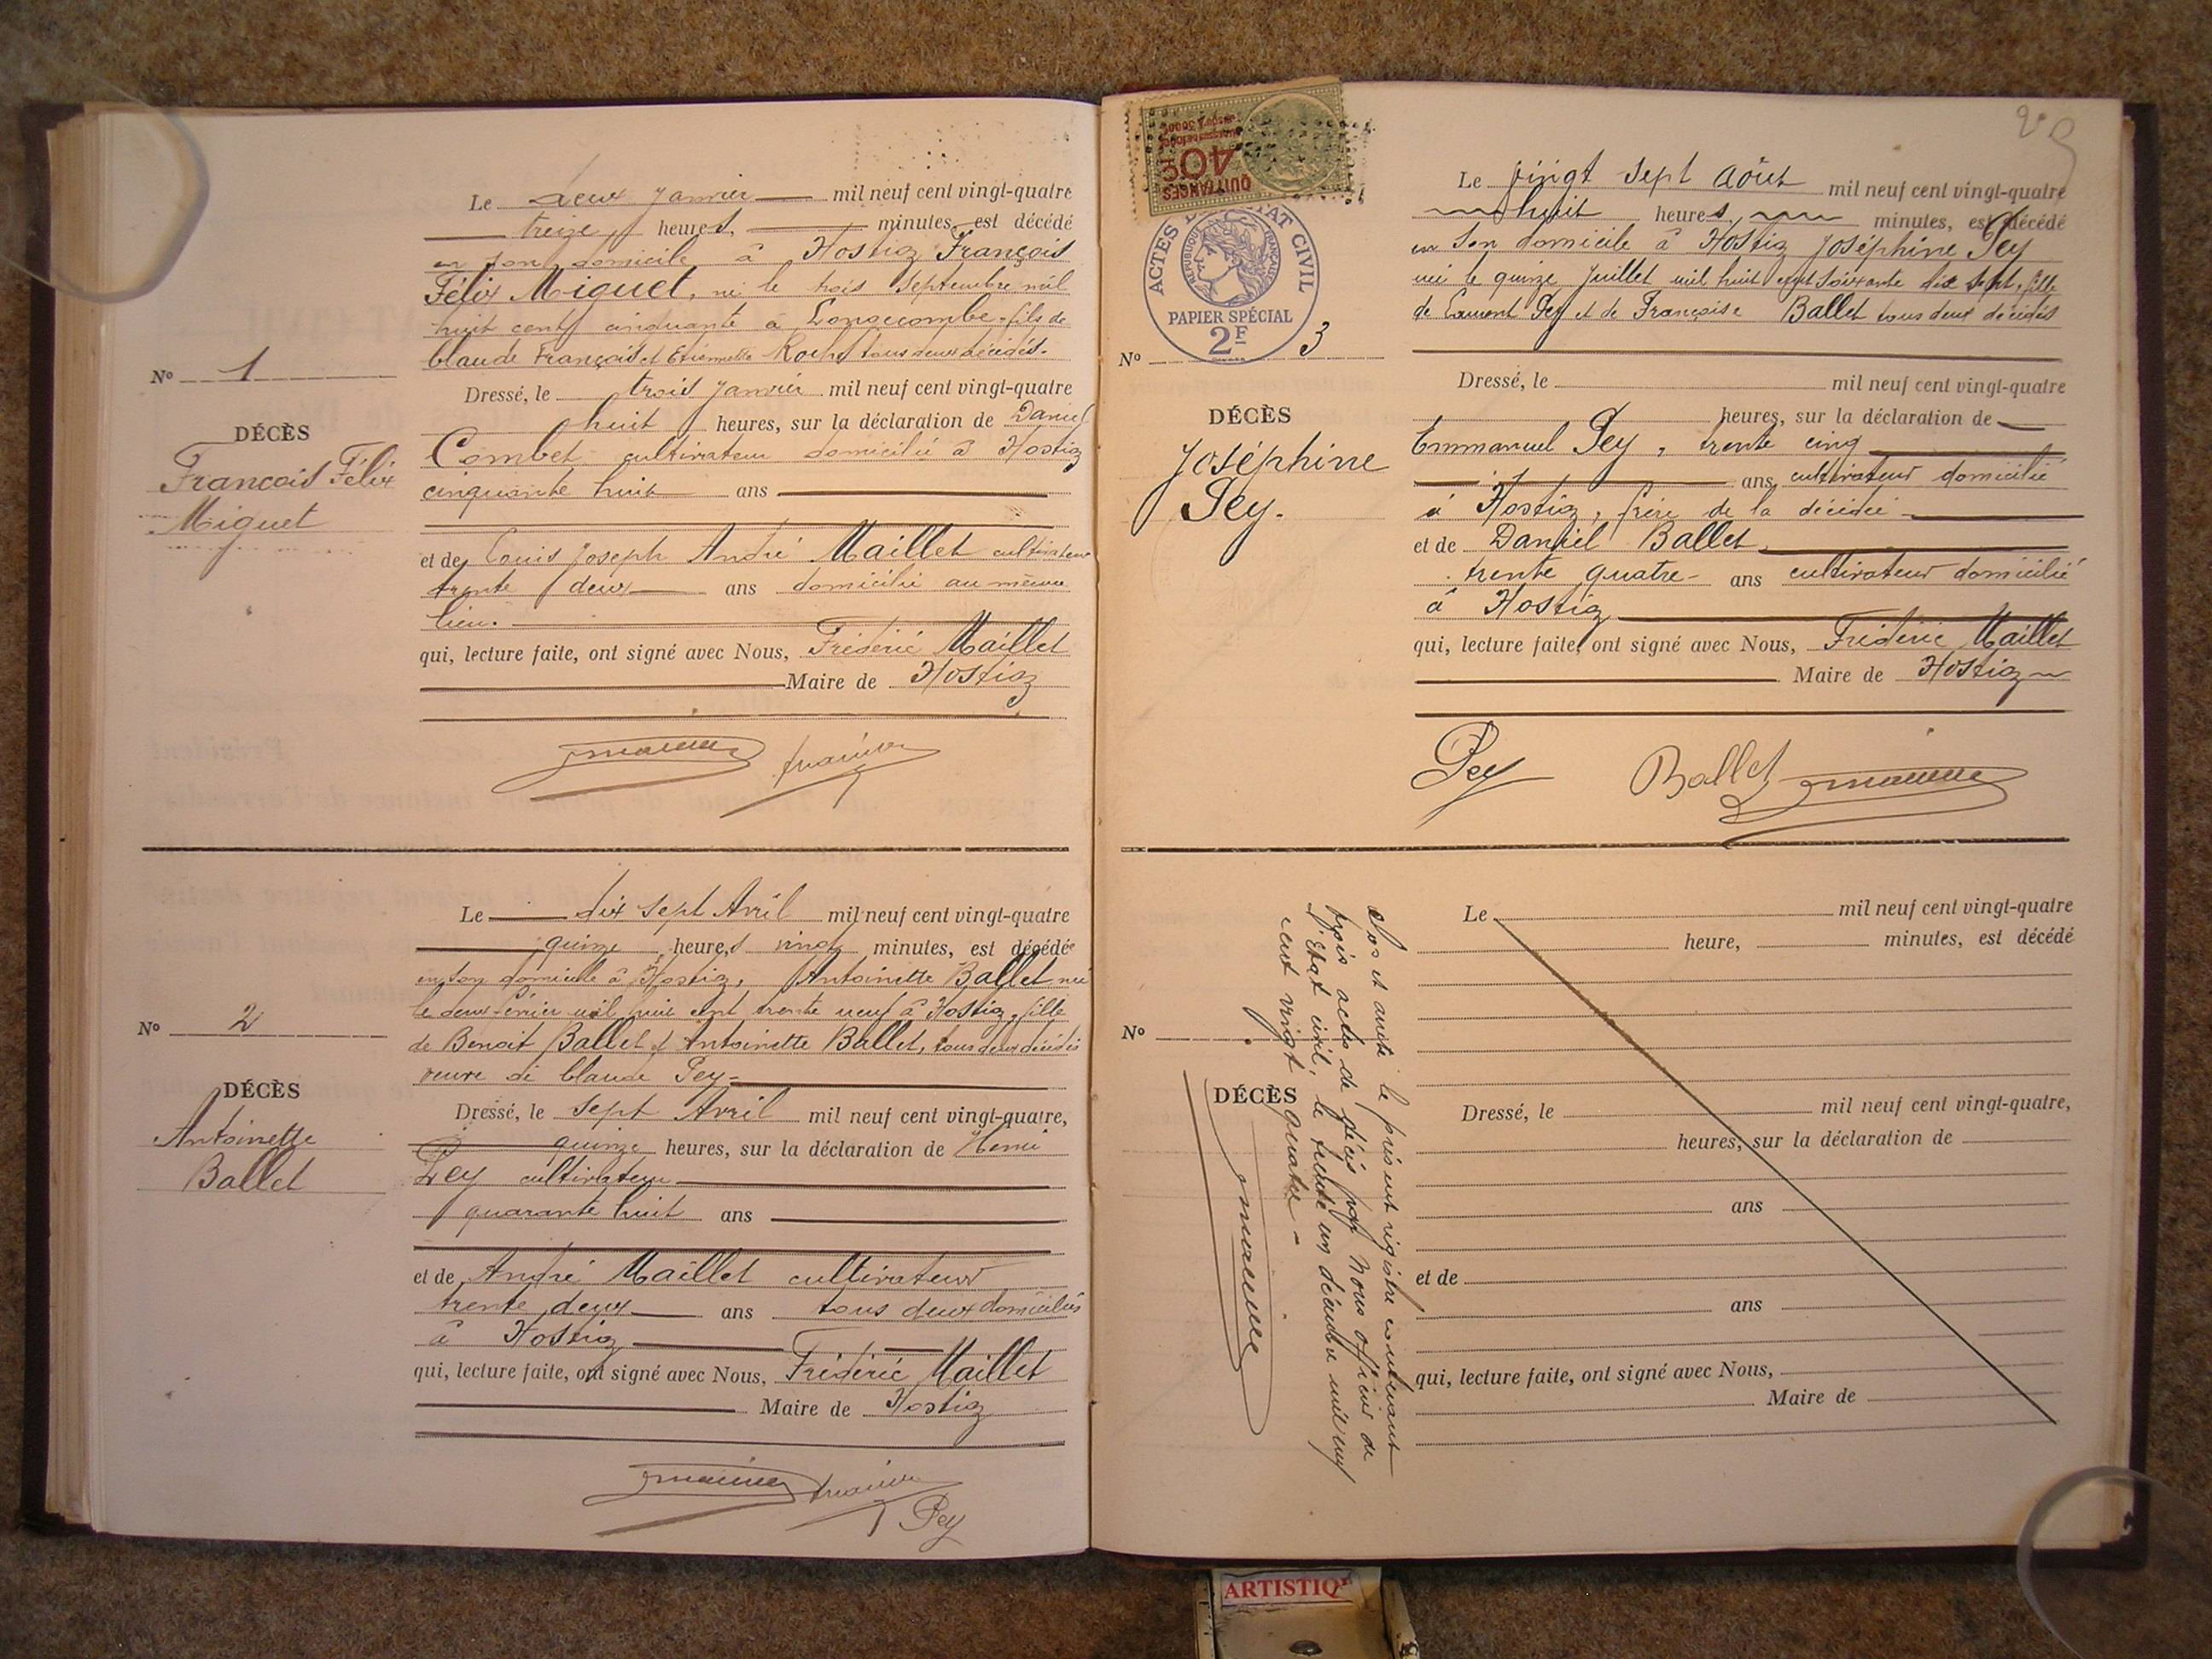 Le deux Janvier mil neuf cent vingt-quatre
treize heures, minutes, est décédé
en son domicile à Hostiaz François
Félix Miguet, né le trois Septembre mil
huit cent cinquante à Longecombe, fils de
Claude François et Etiennette Roche tous deux décédés.
No 1
DÉCÈS
François Félix
Miguet
Dressé, le trois Janvier mil neuf cent vingt-quatre
huit heures, sur la déclaration de Daniel
Combet cultivateur domicilié à Hostiaz
cinquante huit ans
et de Louis Joseph André Maillet cultivateur
trente deux ans domicilié au même
lieu.
qui, lecture faite, ont signé avec Nous, Frédéric Maillet
Maire de Hostiaz
Le dix sept Avril mil neuf cent vingt-quatre
quinze heures vingt minutes, est décédée
en son domicile à Hostiaz, Antoinette Ballet née
le deux février mil huit cent trente neuf à Hostiaz, fille
de Benoit Ballet et Antoinette Ballet, tous deux décédés
veuve de Claude Pey
No 2
DÉCÈS
Antoinette
Ballet
Dressé, le sept Avril mil neuf cent vingt-quatre,
quinze heures, sur la déclaration de Henri
Pey cultivateur
quarante huit ans
et de André Maillet cultivateur
trente deux ans tous deux domiciliés
à Hostiaz
qui, lecture faite, ont signé avec Nous, Frédéric Maillet
Maire de Hostiaz
Pey
QUITTANCES
40c
ACTES ETAT CIVIL
REPUBLIQUE FRANÇAISE
PAPIER SPÉCIAL
2F
Le vingt sept Août mil neuf cent vingt-quatre
huit heures, minutes, est décédé
en son domicile à Hostiaz Joséphine Pey
née le quinze Juillet mil huit cent soixante dix sept, fille
de Laurent Pey et de Françoise Ballet tous deux décédés
No 3
DÉCÈS
Joséphine
Pey.
Dressé, le mil neuf cent vingt-quatre
heures, sur la déclaration de
Emmanuel Pey, trente cinq
ans, cultivateur domicilié
à Hostiaz, frère de la décédée
et de Daniel Ballet
trente quatre ans cultivateur domicilié
à Hostiaz
qui, lecture faite, ont signé avec Nous, Frédéric Maillet
Maire de Hostiaz
Pey Ballet
Le mil neuf cent vingt-quatre
heure, minutes, est décédé
No
DÉCÈS
Clos et arrêté le présent registre contenant
trois actes de décès par Nous officier de
l'Etat civil, le trente un décembre mil neuf
cent vingt quatre
Dressé, le mil neuf cent vingt-quatre,
heures, sur la déclaration de
ans
et de
ans
qui, lecture faite, ont signé avec Nous,
Maire de
ARTISTIQ